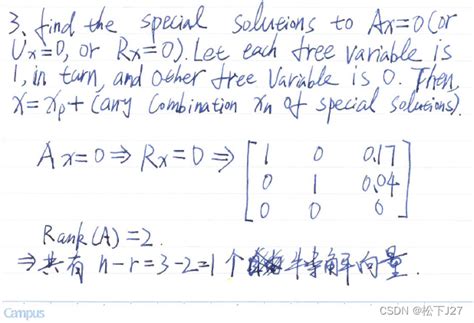 3、find the special solutions to Ax=0(or
Ux=0, or Rx=0). Let each free variable is
1, in turn, and other free Variable is 0. Then,
x=xp+(any Combination xn of special solutions).
Ax=0⇒Rx=0⇒[1 0 0.17
0 1 0.04
0 0 0]
Rank(A)=2.
⇒共有 n-r=3-2=1个 解向量.
Campus
CSDN @松下J27